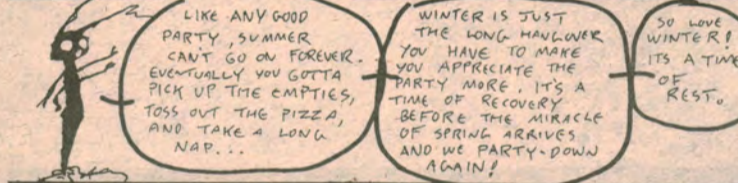 LIKE ANY GOOD
PARTY, SUMMER
CAN'T GO ON FOREVER.
EVENTUALLY YOU GOTTA
PICK UP THE EMPTIES,
TOSS OUT THE PIZZA,
AND TAKE A LONG
NAP...
WINTER IS JUST
THE LONG HANGOVER
YOU HAVE TO MAKE
YOU APPRECIATE THE
PARTY MORE. IT'S A
TIME OF RECOVERY
BEFORE THE MIRACLE
OF SPRING ARRIVES
AND WE PARTY-DOWN
AGAIN!
SO LOVE
WINTER!
ITS A TIME
OF
REST.